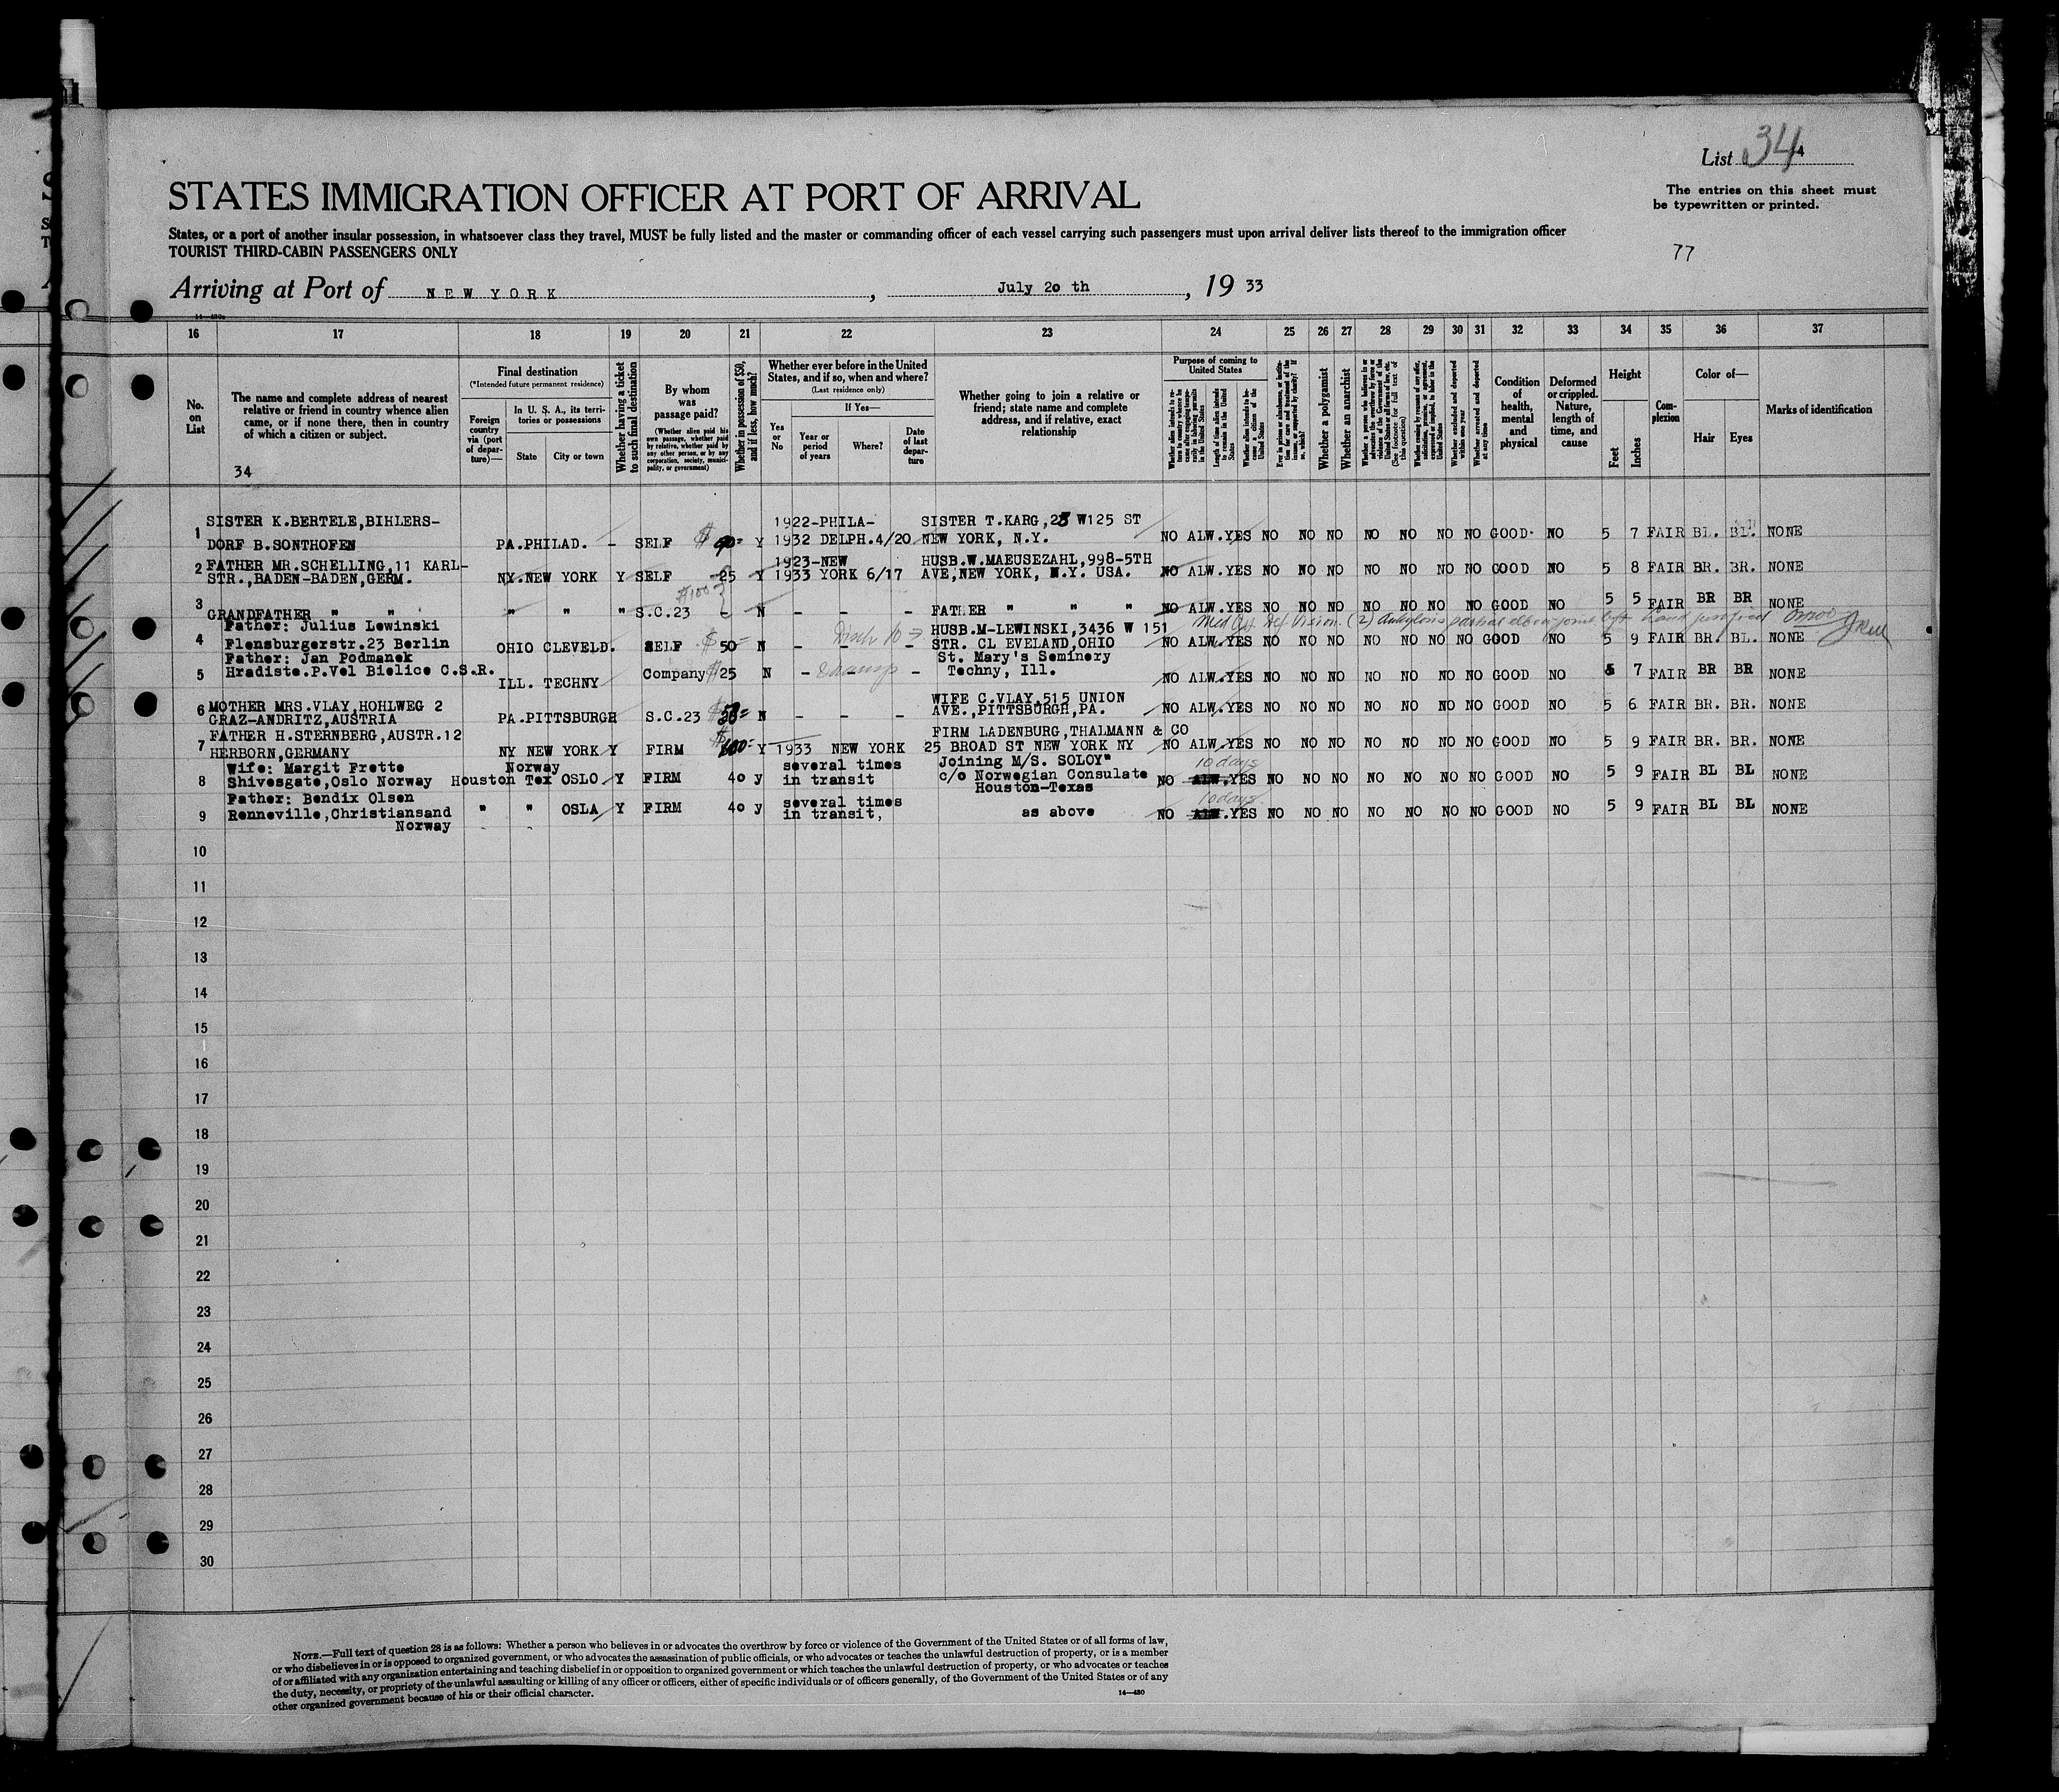 List 344
The entries on this sheet must
be typewritten or printed.
STATES IMMIGRATION OFFICER AT PORT OF ARRIVAL
States, or a port of another insular possession, in whatsoever class they travel, MUST be fully listed and the master or commanding officer of each vessel carrying such passengers must upon arrival deliver lists thereof to the immigration officer
TOURIST THIRD-CABIN PASSENGERS ONLY
77
Arriving at Port of NEW YORK, July 20 th, 19 33
16 17 18 19 20 21 22 23 24 25 26 27 28 29 30 31 32 33 34 35 36 37
No. on List
The name and complete address of nearest
relative or friend in country whence alien
came, or if none there, then in country
of which a citizen or subject.
34
Final destination
(*Intended future permanent residence)
Foreign country via (port of departure)—
In U. S. A., its territories or possessions
State
City or town
Whether having a ticket to such final destination
By whom was passage paid?
(Whether alien paid his own passage, whether paid by relative, whether paid by any other person, or by any corporation, society, municipality, or government)
Whether in possession of $50, and if less, how much?
Whether ever before in the United
States, and if so, when and where?
(Last residence only)
If Yes—
Yes or No
Year or period of years
Where?
Date of last departure
Whether going to join a relative or
friend; state name and complete
address, and if relative, exact
relationship
Purpose of coming to United States
Whether a polygamist
Whether an anarchist
Condition of health, mental and physical
Deformed or crippled. Nature, length of time, and cause
Height
Feet
Inches
Complexion
Color of—
Hair
Eyes
Marks of identification
SISTER K.BERTELE,BIHLERS- 1922-PHILA- SISTER T.KARG, W125 ST
1 DORF B.SONTHOFEN PA.PHILAD. - SELF $ 90= Y 1932 DELPH.4/20 NEW YORK, N.Y. NO ALW.YES NO NO NO NO NO NO NO GOOD NO 5 7 FAIR BL. BL. NONE
2 FATHER MR.SCHELLING,11 KARL- 1923-NEW HUSB.W.MAEUSEZAHL,998-5TH
STR.,BADEN-BADEN,GERM. NY.NEW YORK Y SELF 25 Y 1933 YORK 6/17 AVE,NEW YORK, N.Y. USA. NO ALW.YES NO NO NO NO NO NO NO GOOD NO 5 8 FAIR BR. BR. NONE
$100
3 GRANDFATHER " " " " " S.C.23 N - - - FATHER " " " NO ALW.YES NO NO NO NO NO NO NO GOOD NO 5 5 FAIR BR BR NONE
Father: Julius Lewinski HUSB.M-LEWINSKI,3436 W 151
4 Flensburgerstr.23 Berlin OHIO CLEVELD. SELF $ 50= N - - - STR. CL EVELAND,OHIO NO ALW.YES NO NO NO NO NO NO NO GOOD NO 5 9 FAIR BR. BL. NONE
Father: Jan Podmanek St. Mary's Seminery
5 Hradiste.P.Vel Bielice C.S.R. ILL. TECHNY Company $25 N - - - Techny, Ill. NO ALW.YES NO NO NO NO NO NO NO GOOD NO 5 7 FAIR BR BR NONE
6 MOTHER MRS.VLAY,HOHLWEG 2 WIFE C.VLAY,515 UNION
GRAZ-ANDRITZ,AUSTRIA PA.PITTSBURGH S.C.23 N - - - AVE.,PITTSBURGH,PA. NO ALW.YES NO NO NO NO NO NO NO GOOD NO 5 6 FAIR BR. BR. NONE
FATHER H.STERNBERG,AUSTR.12 FIRM LADENBURG,THALMANN & CO
7 HERBORN,GERMANY NY NEW YORK Y FIRM Y 1933 NEW YORK 25 BROAD ST NEW YORK NY NO ALW.YES NO NO NO NO NO NO NO GOOD NO 5 9 FAIR BR. BR. NONE
Wife: Margit Frette Norway several times Joining M/S. SOLOY" 10 days
8 Shivesgate,Oslo Norway Houston Tex OSLO Y FIRM 40 y in transit c/o Norwegian Consulate NO ALW.YES NO NO NO NO NO NO NO GOOD NO 5 9 FAIR BL BL NONE
Houston-Texas
Father: Bendix Olsen several times 10 days
9 Renneville,Christiansand " " OSLA Y FIRM 40 y in transit, as above NO ALW.YES NO NO NO NO NO NO NO GOOD NO 5 9 FAIR BL BL NONE
Norway
10
11
12
13
14
15
16
17
18
19
20
21
22
23
24
25
26
27
28
29
30
NOTE.—Full text of question 28 is as follows: Whether a person who believes in or advocates the overthrow by force or violence of the Government of the United States or of all forms of law,
or who disbelieves in or is opposed to organized government, or who advocates the assassination of public officials, or who advocates or teaches the unlawful destruction of property, or is a member
of or affiliated with any organization entertaining and teaching disbelief in or opposition to organized government or which teaches the unlawful destruction of property, or who advocates or teaches
the duty, necessity, or propriety of the unlawful assaulting or killing of any officer or officers, either of specific individuals or of officers generally, of the Government of the United States or of any
other organized government because of his or their official character.
14—430